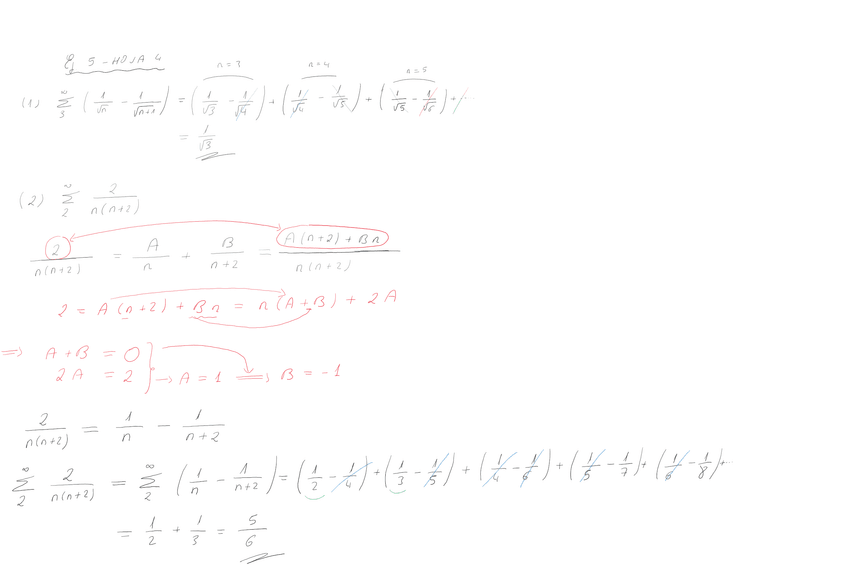 Ej 5 - HOJA 4
n=3 n=4 n=5
(1) ∞ Σ 3 (1/√n - 1/√n+1) = (1/√3 - 1/√4) + (1/√4 - 1/√5) + (1/√5 - 1/√6) + ...
= 1/√3
(2) ∞ Σ 2 2/n(n+2)
2/n(n+2) = A/n + B/n+2 = A(n+2) + Bn/n(n+2)
2 = A(n+2) + Bn = n(A+B) + 2A
=> A+B = 0
2A = 2 → A = 1 => B = -1
2/n(n+2) = 1/n - 1/n+2
∞ Σ 2 2/n(n+2) = ∞ Σ 2 (1/n - 1/n+2) = (1/2 - 1/4) + (1/3 - 1/5) + (1/4 - 1/6) + (1/5 - 1/7) + (1/6 - 1/8) + ...
= 1/2 + 1/3 = 5/6